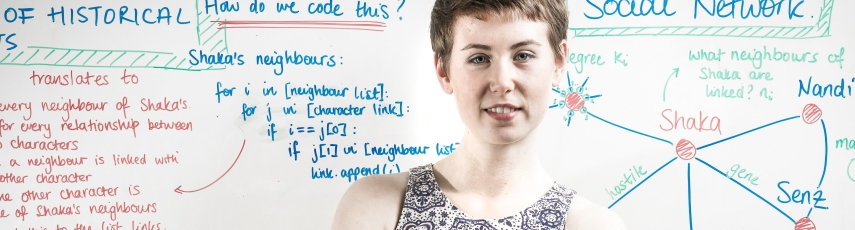 OF HISTORICAL
TS
translates to
every neighbour of Shaka's
for every relationship between
characters
a neighbour is linked with
other character
other character is
of Shaka's neighbours
to the list links.
How do we code this?
Shaka's neighbours:
for i in [neighbour list]:
for j in [character link]:
if i == j[0]:
if j[1] in [neighbour list
link.append(i)
Social Network.
degree ki
what neighbours of
Shaka are
linked? ni
Nandi
Shaka
hostile
gene
Senz
ma